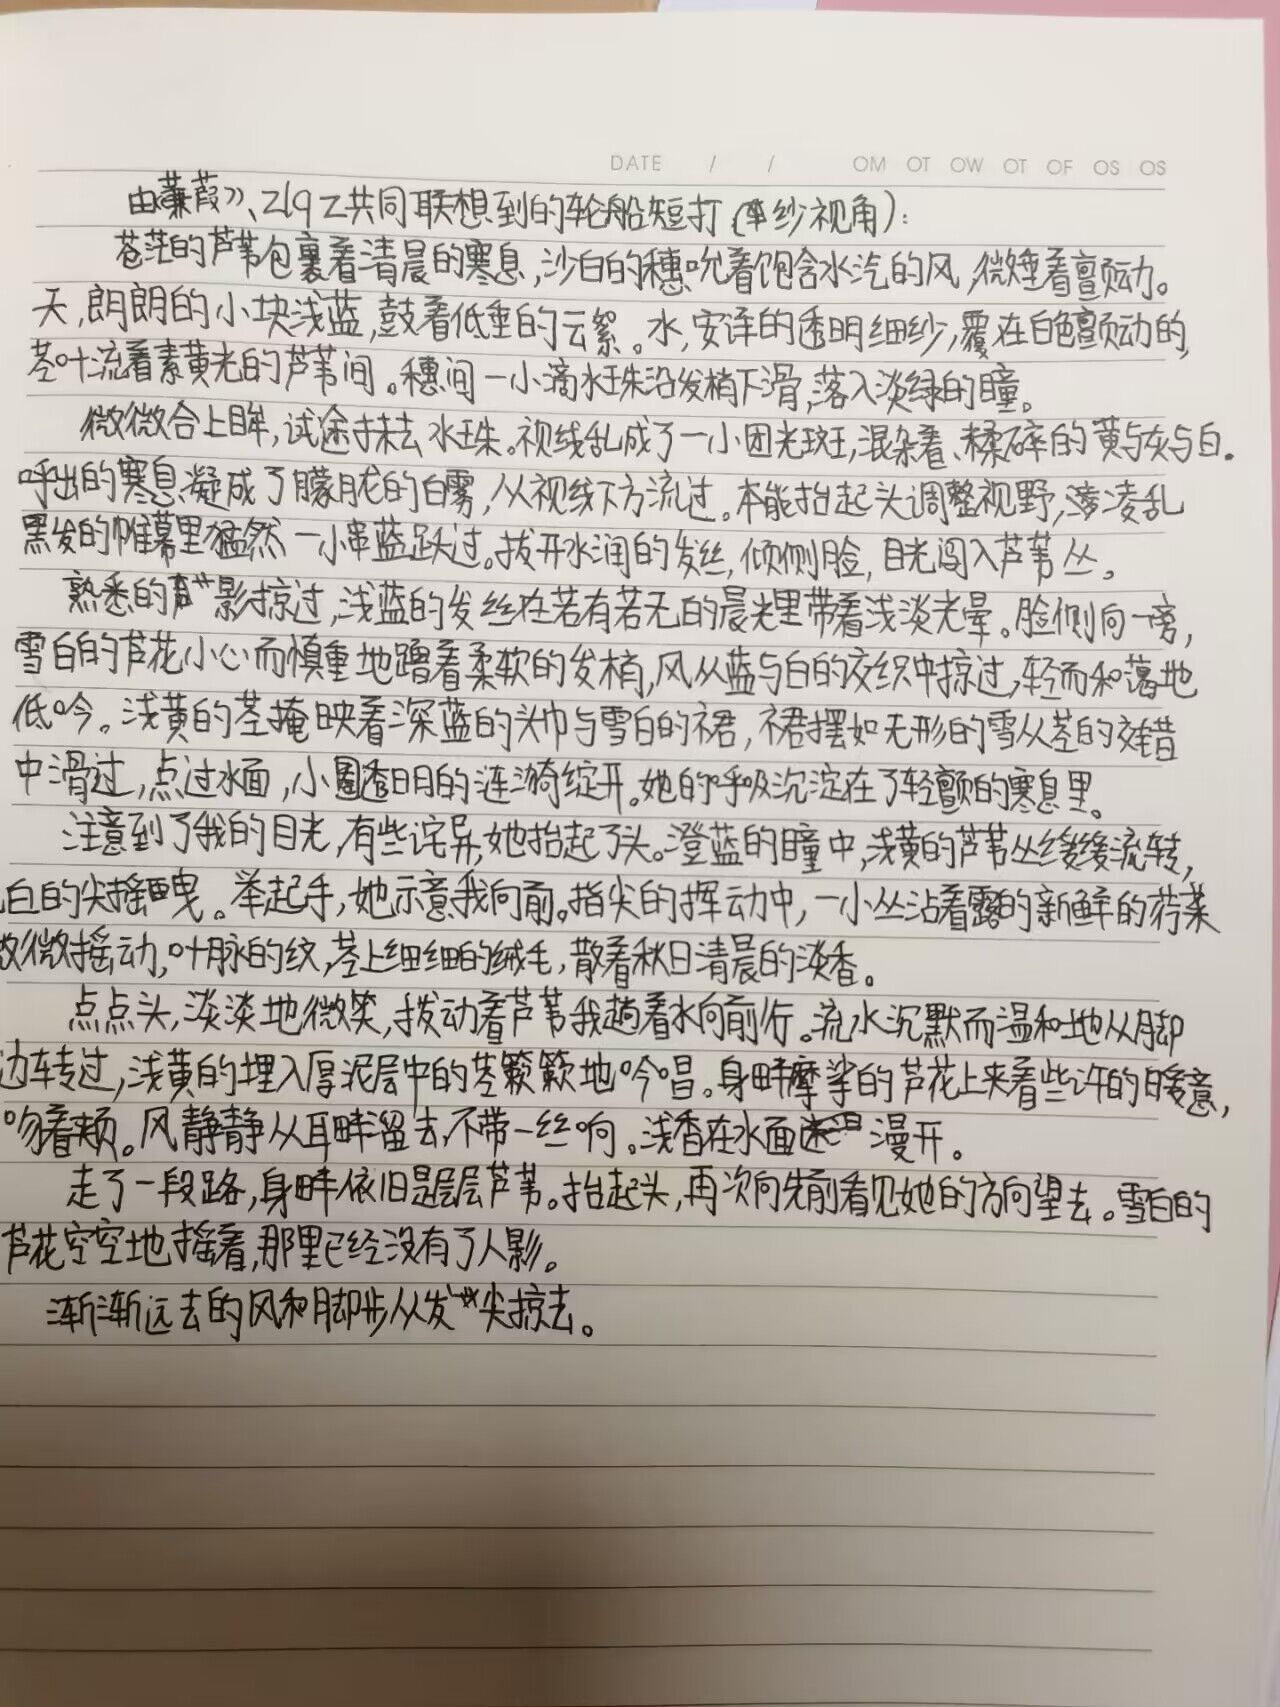 DATE / / OM OT OW OT OF OS OS
由《蒹葭》、Z19Z共同联想到的轮船短打(车纱视角):
苍茫的芦苇包裹着清晨的寒息,沙白的穗吮着饱含水汽的风,微垂着颤动。
天,朗朗的小块浅蓝,鼓着低垂的云絮。水,安详的透明细纱,覆在白色颤动的,
茎叶流着素黄光的芦苇间。穗间一小滴水珠沿发梢下滑,落入淡绿的瞳。
微微合上眸,试途抹去水珠。视线乱成了一小团光斑,混杂着、揉碎的黄与灰与白。
呼出的寒息凝成了朦胧的白雾,从视线下方流过。本能抬起头调整视野,凌乱
黑发的帷幕里猛然一小串蓝跃过。拔开水润的发丝,倾侧脸,目光闯入芦苇丛。
熟悉的影掠过,浅蓝的发丝在若有若无的晨光里带着浅淡光晕。脸侧向一旁,
雪白的芦花小心而慎重地蹭着柔软的发梢,风从蓝与白的交织中掠过,轻而和蔼地
低吟。浅黄的茎掩映着深蓝的头巾与雪白的裙,裙摆如无形的雪从茎的交错
中滑过,点过水面,小圈透明的涟漪绽开。她的呼吸沉淀在了轻颤的寒息里。
注意到了我的目光,有些诧异,她抬起了头。澄蓝的瞳中,浅黄的芦苇丛缓缓流转,
白的尖摇曳。举起手,她示意我向前。指尖的挥动中,一小丛沾着露的新鲜的荇菜
微微摇动,叶脉的纹,茎上细细的绒毛,散着秋日清晨的淡香。
点点头,淡淡地微笑,拨动着芦苇我趟着水向前行。流水沉默而温和地从脚
边转过,浅黄的埋入厚泥层中的茎簌簌地吟唱。身畔摩挲的芦花上来着些许的暖意,
吻着颊。风静静从耳畔溜去,不带一丝响。浅香在水面漫开。
走了一段路,身畔依旧是层层芦苇。抬起头,再次向先前看见她的方向望去。雪白的
芦花空空地摇着,那里已经没有了人影。
渐渐远去的风和脚步从发尖掠去。